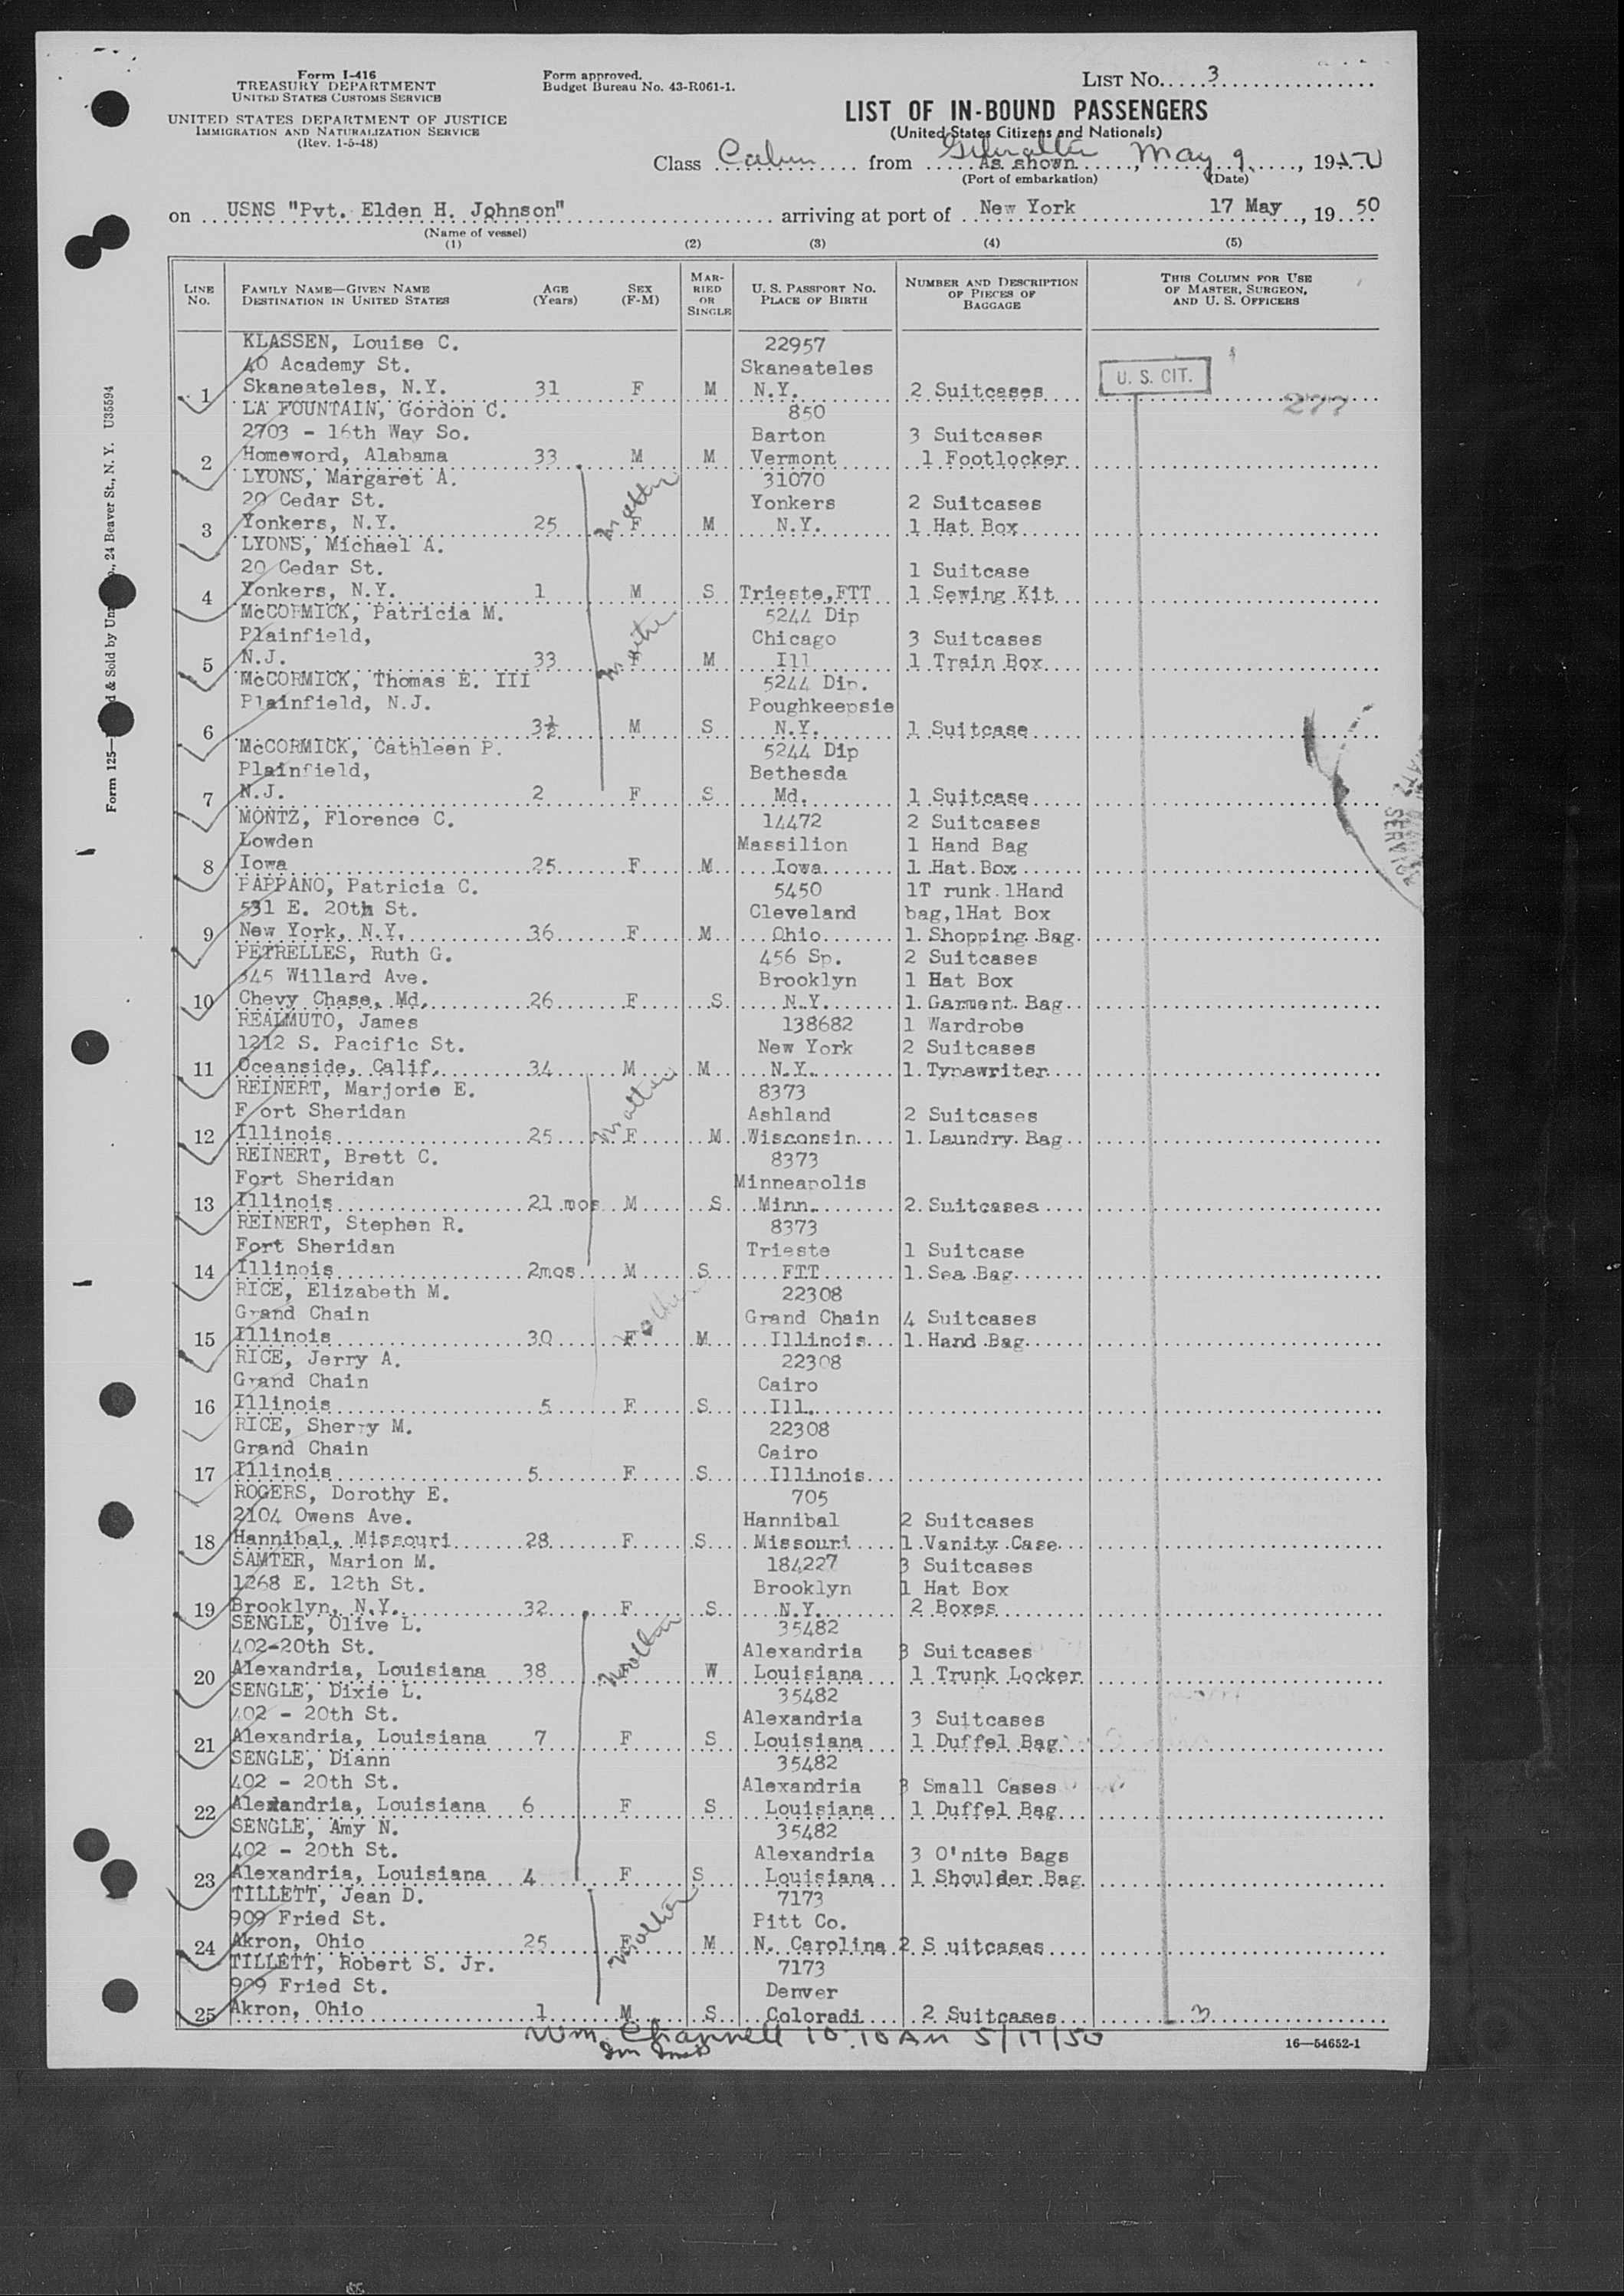 Form I-416
TREASURY DEPARTMENT
UNITED STATES CUSTOMS SERVICE
UNITED STATES DEPARTMENT OF JUSTICE
IMMIGRATION AND NATURALIZATION SERVICE
(Rev. 1-5-48)
Form approved.
Budget Bureau No. 43-R061-1.
LIST No. 3
LIST OF IN-BOUND PASSENGERS
(United States Citizens and Nationals)
Class Cabin from Gibralter As shown, May 9, 1950
(Port of embarkation) (Date)
on USNS "Pvt. Elden H. Johnson" arriving at port of New York 17 May, 19 50
(Name of vessel)
(1) (2) (3) (4) (5)
LINE No. FAMILY NAME—GIVEN NAME DESTINATION IN UNITED STATES AGE (Years) SEX (F-M) MARRIED OR SINGLE U. S. PASSPORT No. PLACE OF BIRTH NUMBER AND DESCRIPTION OF PIECES OF BAGGAGE THIS COLUMN FOR USE OF MASTER, SURGEON, AND U. S. OFFICERS
KLASSEN, Louise C. 22957
40 Academy St. Skaneateles
1 Skaneateles, N.Y. 31 F M N.Y. 2 Suitcases U. S. CIT. 277
LA FOUNTAIN, Gordon C. 850
2703 - 16th Way So. Barton 3 Suitcases
2 Homeword, Alabama 33 M M Vermont 1 Footlocker
LYONS, Margaret A. 31070
20 Cedar St. Yonkers 2 Suitcases
3 Yonkers, N.Y. 25 Mother F M N.Y. 1 Hat Box
LYONS, Michael A.
20 Cedar St. 1 Suitcase
4 Yonkers, N.Y. 1 M S Trieste,FTT 1 Sewing Kit
McCORMICK, Patricia M. 5244 Dip
Plainfield, Chicago 3 Suitcases
5 N.J. 33 Mother F M Ill 1 Train Box
McCORMICK, Thomas E. III 5244 Dip.
Plainfield, N.J. Poughkeepsie
6 3½ M S N.Y. 1 Suitcase
McCORMICK, Cathleen P. 5244 Dip
Plainfield, Bethesda
7 N.J. 2 F S Md. 1 Suitcase
MONTZ, Florence C. 14472 2 Suitcases
Lowden Massilion 1 Hand Bag
8 Iowa 25 F M Iowa 1 Hat Box
PAPPANO, Patricia C. 5450 1T runk.1Hand
531 E. 20th St. Cleveland bag,1Hat Box
9 New York, N.Y. 36 F M Ohio 1 Shopping Bag
PETRELLES, Ruth G. 456 Sp. 2 Suitcases
345 Willard Ave. Brooklyn 1 Hat Box
10 Chevy Chase, Md. 26 F S N.Y. 1 Garment Bag
REALMUTO, James 138682 1 Wardrobe
1212 S. Pacific St. New York 2 Suitcases
11 Oceanside, Calif. 34 M M N.Y. 1 Typewriter
REINERT, Marjorie E. 8373
F ort Sheridan Ashland 2 Suitcases
12 Illinois 25 Mother F M Wisconsin 1 Laundry Bag
REINERT, Brett C. 8373
Fort Sheridan Minneapolis
13 Illinois 21 mos M S Minn. 2 Suitcases
REINERT, Stephen R. 8373
Fort Sheridan Trieste 1 Suitcase
14 Illinois 2mos M S FTT 1 Sea Bag
RICE, Elizabeth M. 22308
Grand Chain Grand Chain 4 Suitcases
15 Illinois 30 Mother F M Illinois 1 Hand Bag
RICE, Jerry A. 22308
Grand Chain Cairo
16 Illinois 5 F S Ill.
RICE, Sherry M. 22308
Grand Chain Cairo
17 Illinois 5 F S Illinois
ROGERS, Dorothy E. 705
2104 Owens Ave. Hannibal 2 Suitcases
18 Hannibal, Missouri 28 F S Missouri 1 Vanity Case
SAMTER, Marion M. 184227 3 Suitcases
1268 E. 12th St. Brooklyn 1 Hat Box
19 Brooklyn, N.Y. 32 F S N.Y. 2 Boxes
SENGLE, Olive L. 35482
402-20th St. Alexandria 3 Suitcases
20 Alexandria, Louisiana 38 Mother W Louisiana 1 Trunk Locker
SENGLE, Dixie L. 35482
402 - 20th St. Alexandria 3 Suitcases
21 Alexandria, Louisiana 7 F S Louisiana 1 Duffel Bag
SENGLE, Diann 35482
402 - 20th St. Alexandria 3 Small Cases
22 Alexandria, Louisiana 6 F S Louisiana 1 Duffel Bag
SENGLE, Amy N. 35482
402 - 20th St. Alexandria 3 O'nite Bags
23 Alexandria, Louisiana 4 F S Louisiana 1 Shoulder Bag
TILLETT, Jean D. 7173
909 Fried St. Pitt Co.
24 Akron, Ohio 25 Mother F M N. Carolina 2 S uitcases
TILLETT, Robert S. Jr. 7173
909 Fried St. Denver
25 Akron, Ohio 1 M S Coloradi 2 Suitcases 3
Wm. Channell 10:10 AM 5/17/50
16—54652-1
Form 125— & Sold by 24 Beaver St., N. Y. U35594